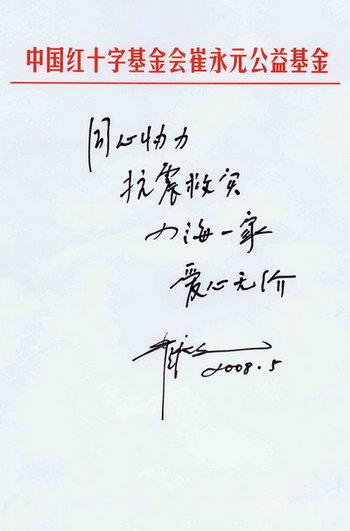 中国红十字基金会崔永元公益基金
同心协力
抗震救灾
四海一家
爱心无价
2008.5